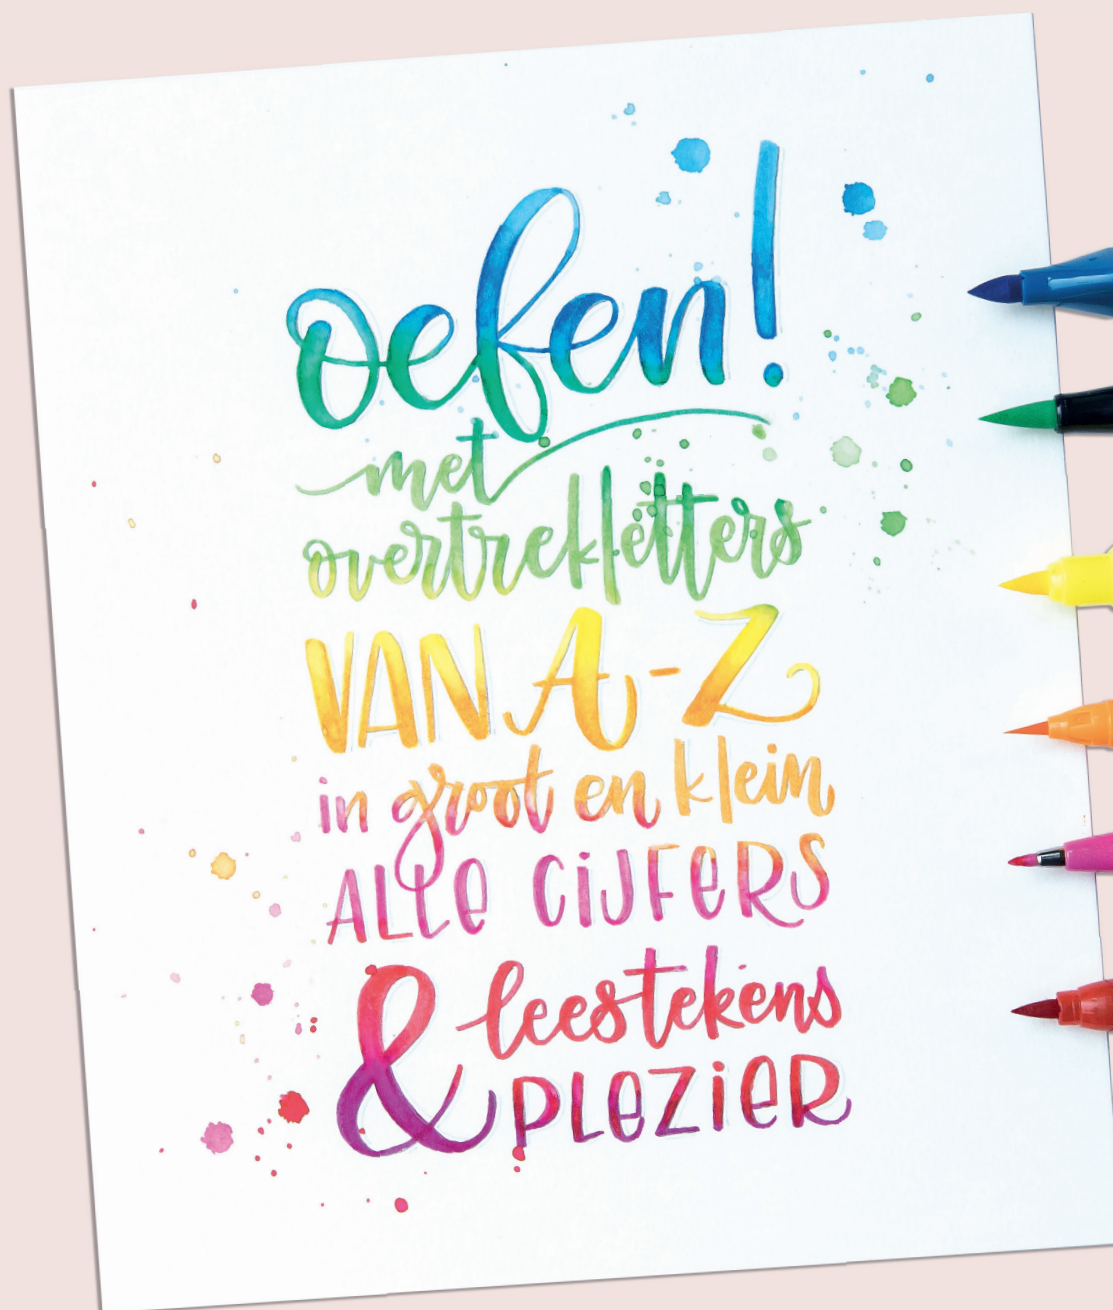 oefen!
met
overtrekletters
VAN A-Z
in groot en klein
ALLE CIJFERS
& leestekens
PLEZIER